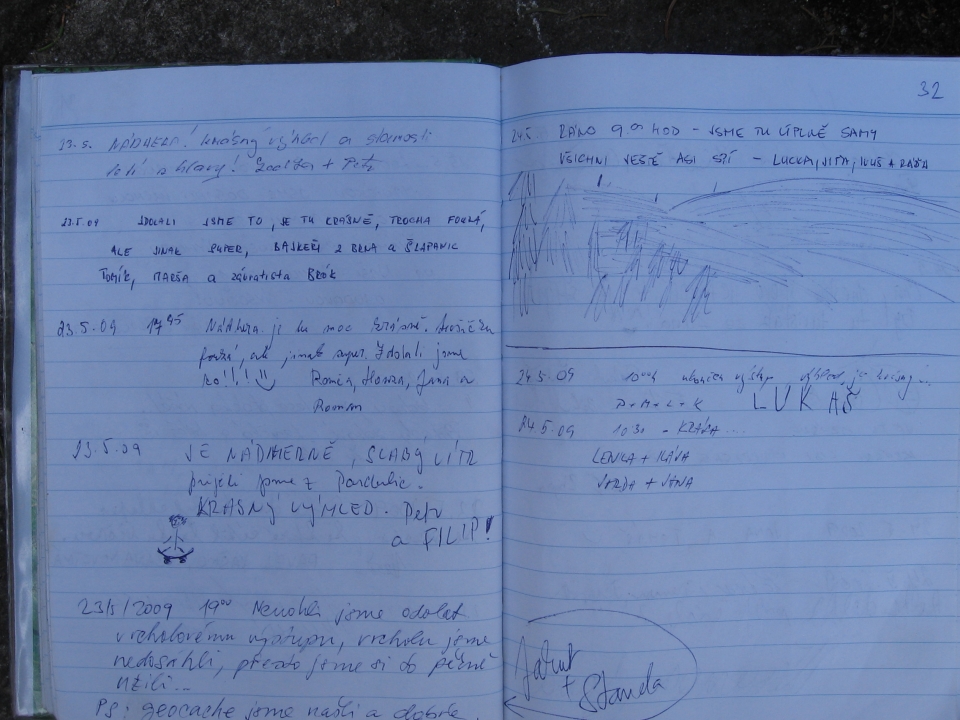 23.5. NÁDHERA! krásný výhled a starosti
letí z hlavy! + Petr
23.5.09 ZDOLALI JSME TO, JE TU KRÁSNĚ, TROCHA FOUKÁ,
ALE JINAK SUPER, BAJKEŘI Z BRNA a ŠLAPANIC
TOMÍK, MARŠA a závratista BRÓK
23.5.09 17 45 Nádhera je tu moc krásně.
fouká, ale jinak super. Zdolali jsme
to!!!!
Honza, Jana a
Roman
23.5.09 JE NÁDHERNĚ, SLABÝ VÍTR
přijeli jsme z Pardubic.
KRÁSNÝ VÝHLED. Petr
a FILIP!
23/5/2009 19 00 Nemohli jsme odolat
vrcholovému výstupu, vrcholu jsme
nedosáhli, přesto jsme si to pěkně
užili...
PS: geocache jsme našli a dobře
32
24.5. RÁNO 9.00 HOD - JSME TU ÚPLNĚ SAMY
VŠICHNI JEŠTĚ ASI SPÍ - LUCKA, JITA,
24.5.09 výstup výhled je krásný...
P+M+L+K LUKÁŠ
24.5.09 10 30 - KRÁSA...
LENKA + KÁVA
JARDA + JANA
+ Standa